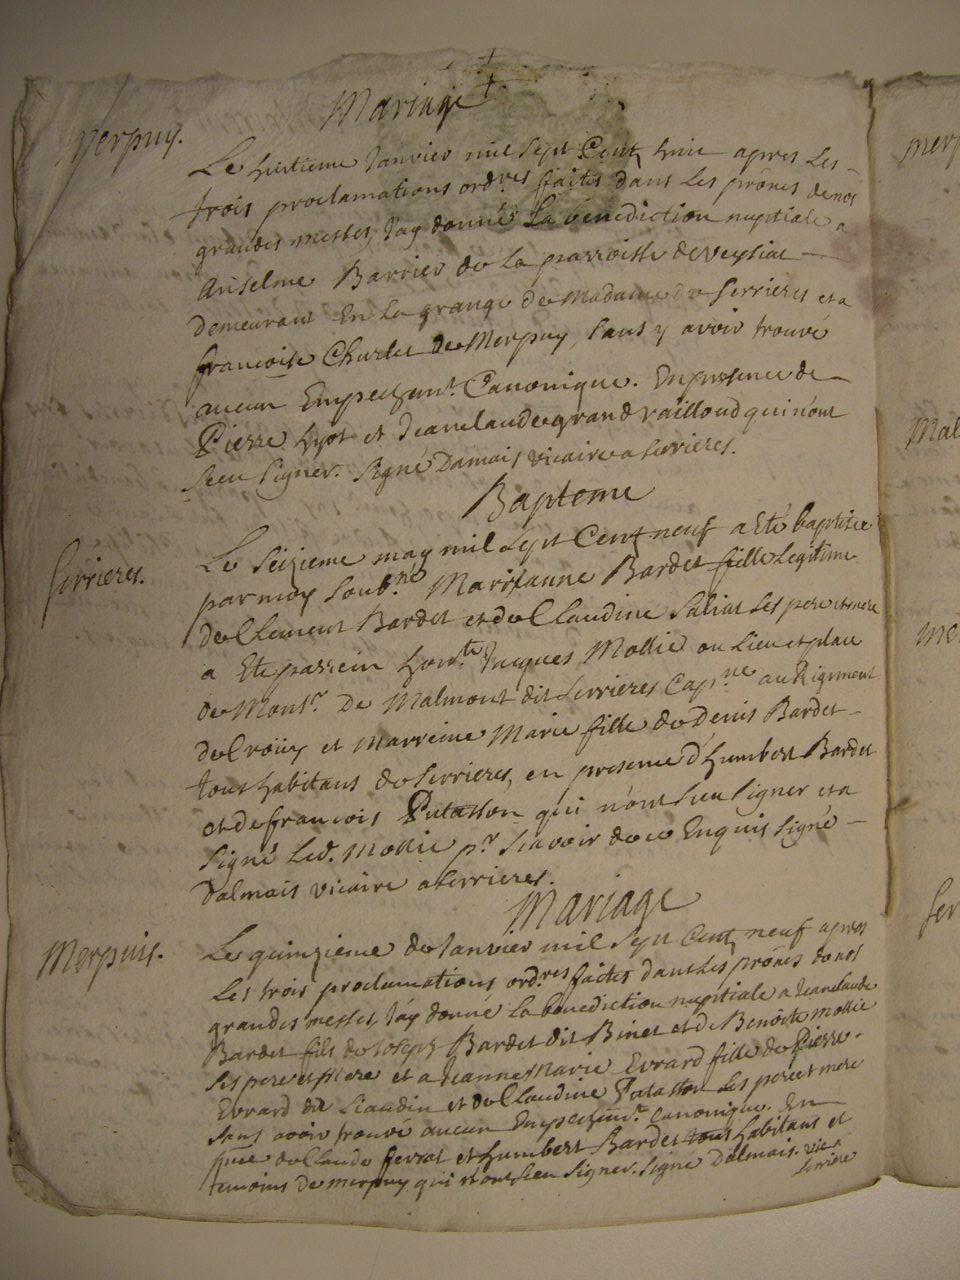 Mariage
Merpuy.
Le huitieme Janvier mil sept Cent huit apres les
trois proclamations ord.res faites dans les prônes de nos
grandes messes, J'ay donné la benediction nuptiale a
Anselme Barrier de la parroisse de
demeurant En la grange de Madame de Serrieres et a
francoise Charlet de Merpuy, sans y avoir trouvé
aucun Empechem.t Canonique. En presence de
Pierre hyot et Jeanclaude grand vailloud qui n'ont
sceu signer. Signé Damais vicaire a Serrieres.
Bapteme
Serrieres.
Le Seizieme may mil sept Cent neuf a Eté baptisée
par moy soub.né Marianne Bardet fille Legitime
de Clement Bardet et de Claudine Saliat ses pere et mere
a Ete parrein hon.te Jacques Mollie au Lieu et place
de Mons.r De Malmont dit Serrieres Cap.ne au Regiment
de Croüy et marreine Marie fille de Denis Bardet
tous habitans de Serrieres, en presence d'humbert Bardet
et de francois Putasson qui n'ont sceu signer et a
signé Led. Mollie p.r scavoir de ce Enquis signé
Dalmais vicaire a Serrieres.
Mariage
Merpuis.
Le quinzieme de Janvier mil sept Cent neuf apres
les trois proclamations ord.res faites dans les prônes de nos
grandes messes, J'ay donné la benediction nuptiale a Jeanclaude
Bardet fils de Joseph Bardet dit Binet et de Benoite mollie
ses pere et mere et a Jeanne Marie Evrard fille de Pierre
Evrard dit Liaudin et de Claudine Putasson ses pere et mere
sans avoir trouvé aucun Empechem.t canonique. En
p.nce de Claude ferrat et humbert Bardet tous habitans et
temoins de merpuy qui n'ont sceu signer. Signé Dalmais. vic.e a
Serriere
merp
Mal
me
Ser